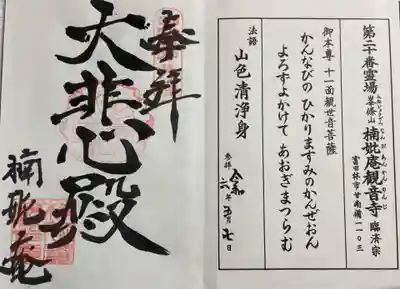 第二十番霊場
峯條山 楠妣庵観音寺 臨済宗
富田林市甘南備一一〇三
御本尊 十一面観世音菩薩
かんなびの ひかりますみのかんぜおん
よろずよかけて あおぎまつらむ
法語
山色清浄身
参拝 令和 六年 五月 七日
奉拝
大悲殿
楠妣庵